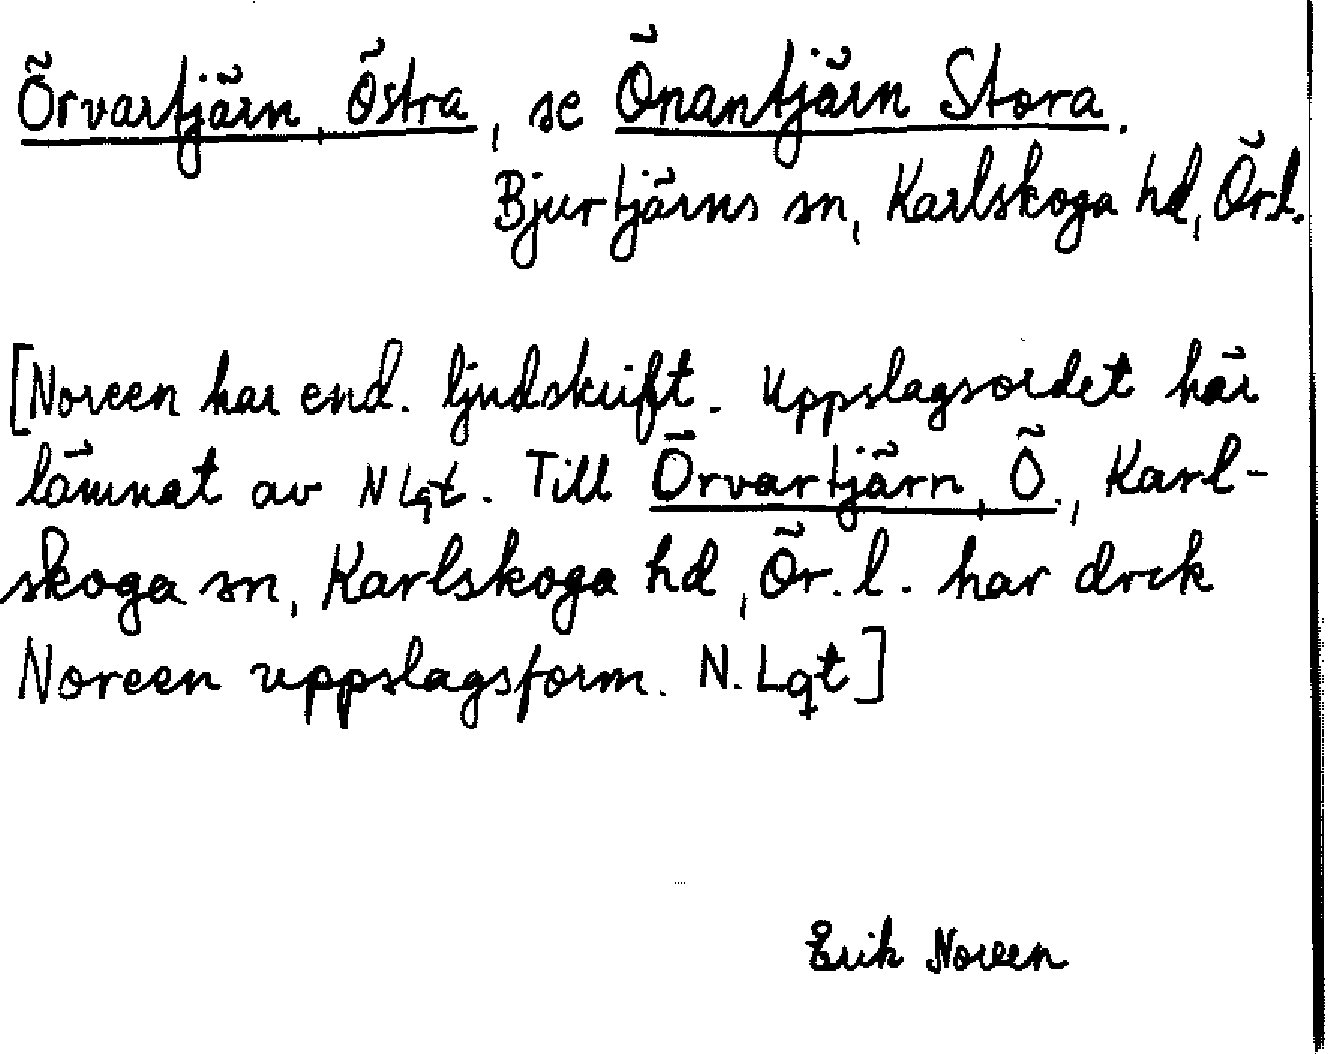 Örvartjärn, Östra, se Önantjärn Stora.
Bjurtjärns sn, Karlskoga hd, Ör.l.
[Noreen har end. ljudskrift. Uppslagsordet här
lämnat av N Lqt. Till Örvartjärn, Ö., Karl-
skoga sn, Karlskoga hd, Ör.l. har dock
Noreen uppslagsform. N. Lqt]
Erik Noreen